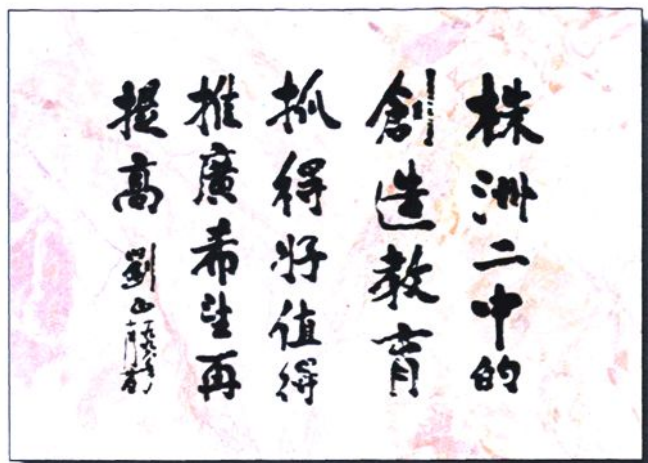 株洲二中的
創造教育
抓得好值得
推廣希望再
提高 劉山